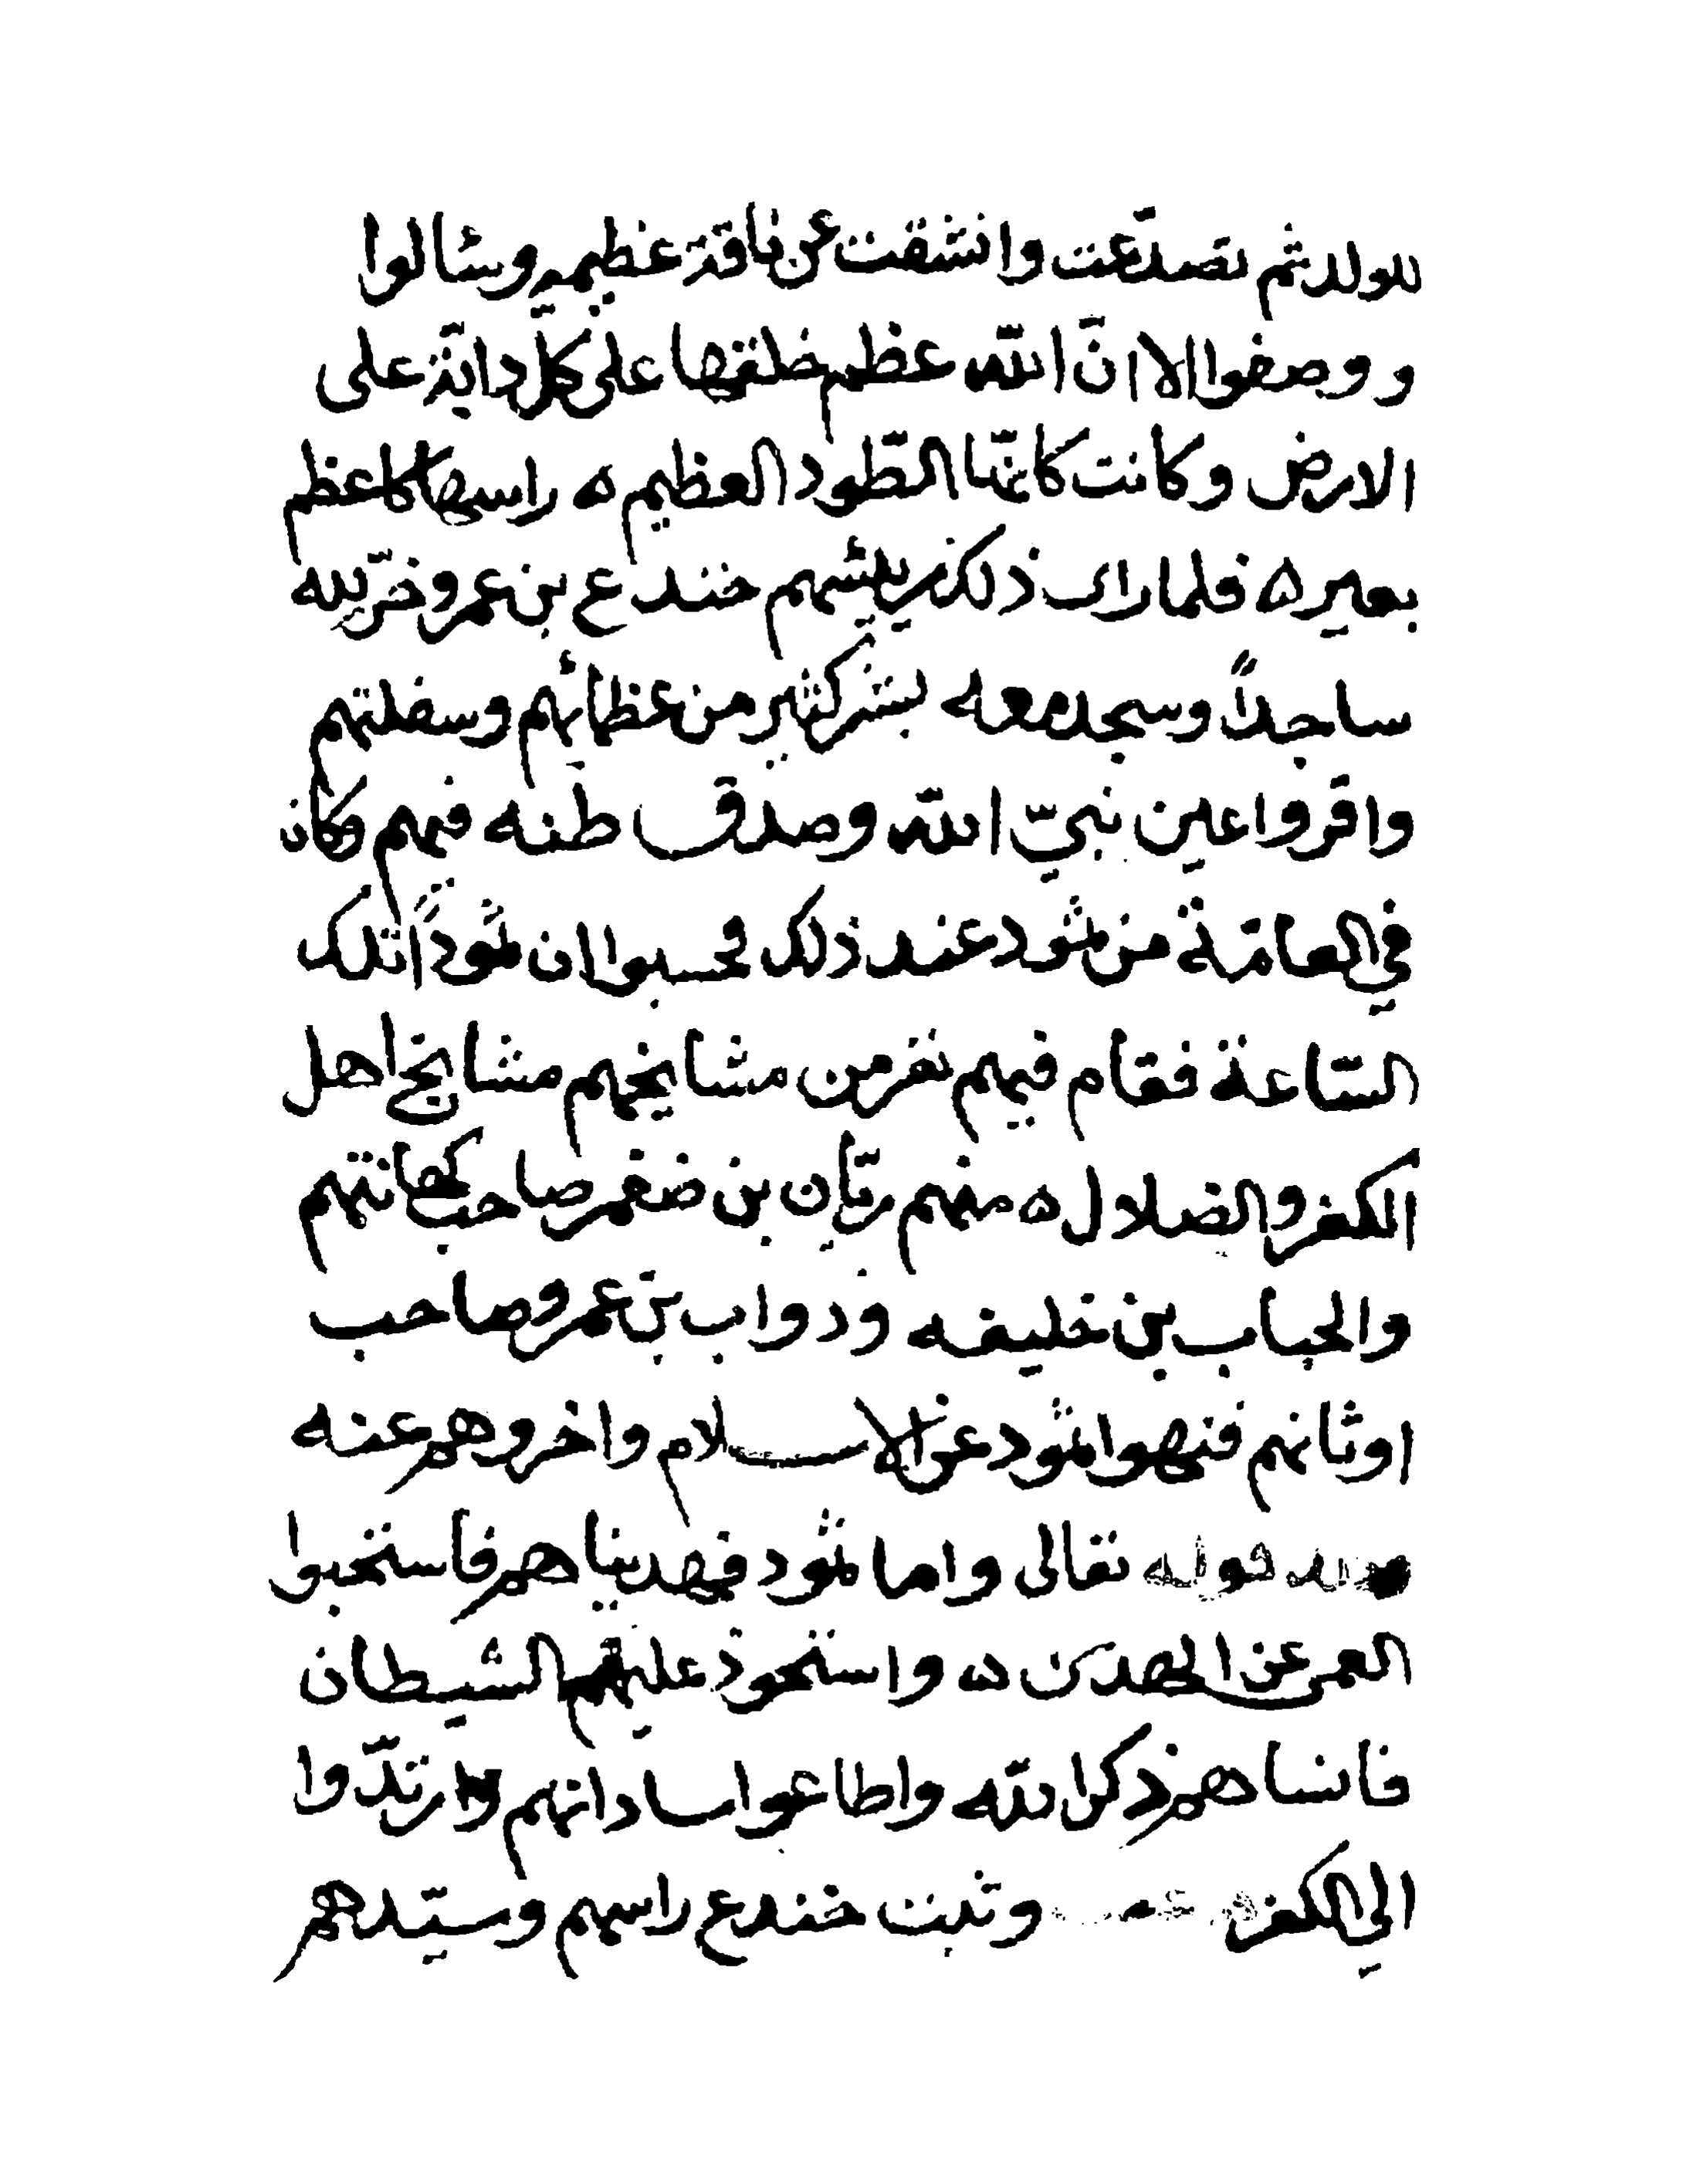 للولد ثم تصدعت وانشقت عن ناقة عظيمة وسالوا
ووصفوا الا ان الله عظم خلقها على كل دابة على
الارض وكانت كانها الطود العظيم ه راسها كاعظم
بعير ه فلما راى ذلك رئيسهم خندع بن عمرو خر لله
ساجداً وسجد معه بشر كثير من عظائهم وسفلتهم
واقروا عين نبي الله وصدق ظنه فيهم وكان
في العامة من ثمود عند ذلك فحسبوا ان ثموداً تلك
الساعة فقام فيهم نفر من مشايخهم مشايخ اهل
الكفر والضلال ه منهم ريان بن ضغمر صاحب كهانتهم
والحباب بن خليفه وذواب بن عمرو صاحب
اوثانهم فنهوا ثمود عن الاسلام واخروهم عنه
قوله تعالى واما ثمود فهديناهم فاستحبوا
العمى عن الهدى ه واستحوذ عليهم الشيطان
فانساهم ذكر الله واطاعوا ساداتهم وارتدوا
الى الكفر وثبت خندع راسهم وسيدهم